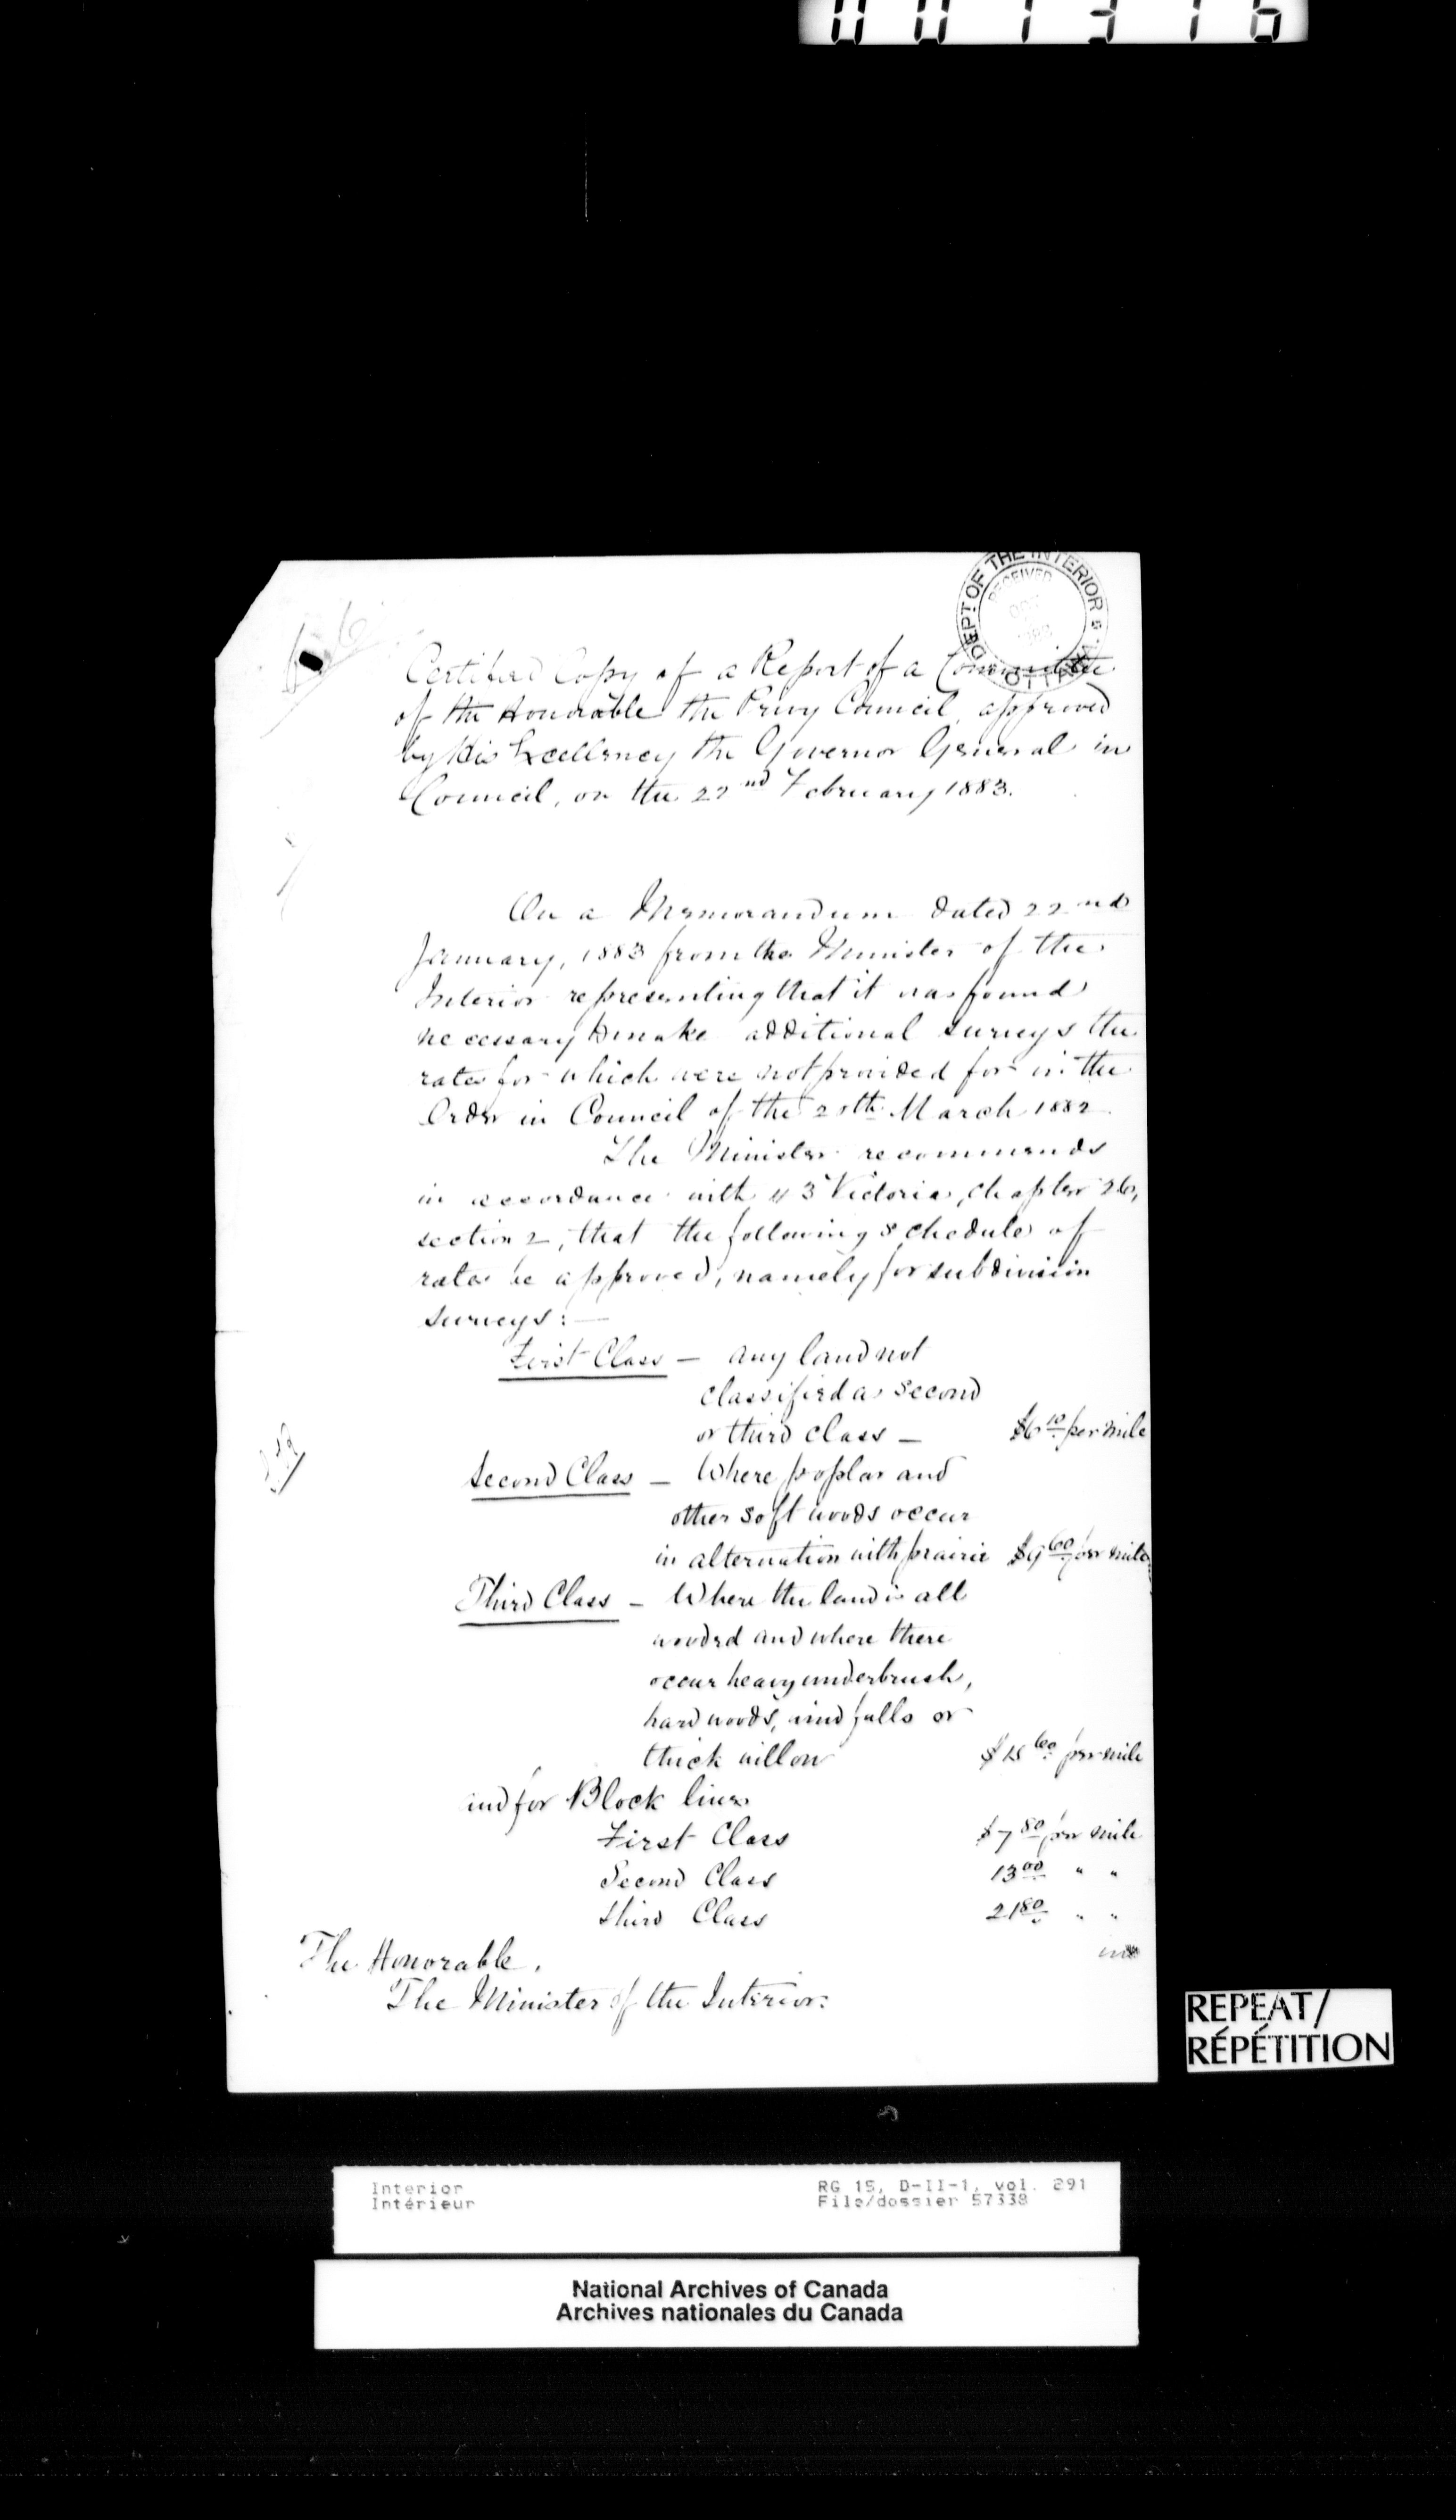 Certified Copy of a Report of a Committee
of the Honorable the Privy Council, approved
by His Excellency the Governor General in
Council, on the 22nd February 1883.
DEPT OF THE INTERIOR
RECEIVED
OTTAWA
On a Memorandum dated 22nd
January, 1883 from the Minister of the
Interior representing that it was found
necessary to make additional surveys the
rates for which were not provided for in the
Order in Council of the March 1882.
The Minister recommends
in accordance with 43 Victoria, chapter 26,
section 2, that the following schedule of
rates be approved, namely for subdivision
surveys:—
First Class — any land not
classified as second
or third class — $6 10 per mile
Second Class — Where poplar and
other soft woods occur
in alternation with prairie $9 60 per mile
Third Class — Where the land is all
wooded and where there
occur heavy underbrush,
hard woods, windfalls or
thick willow $15 60 per mile
and for Block lines
First Class $7 80 per mile
Second Class 13 00 " "
Third Class 21 80 " "
The Honorable,
The Minister of the Interior.
REPEAT/
RÉPÉTITION
Interior RG 15, D-II-1, vol. 291
Intérieur File/dossier 57338
National Archives of Canada
Archives nationales du Canada